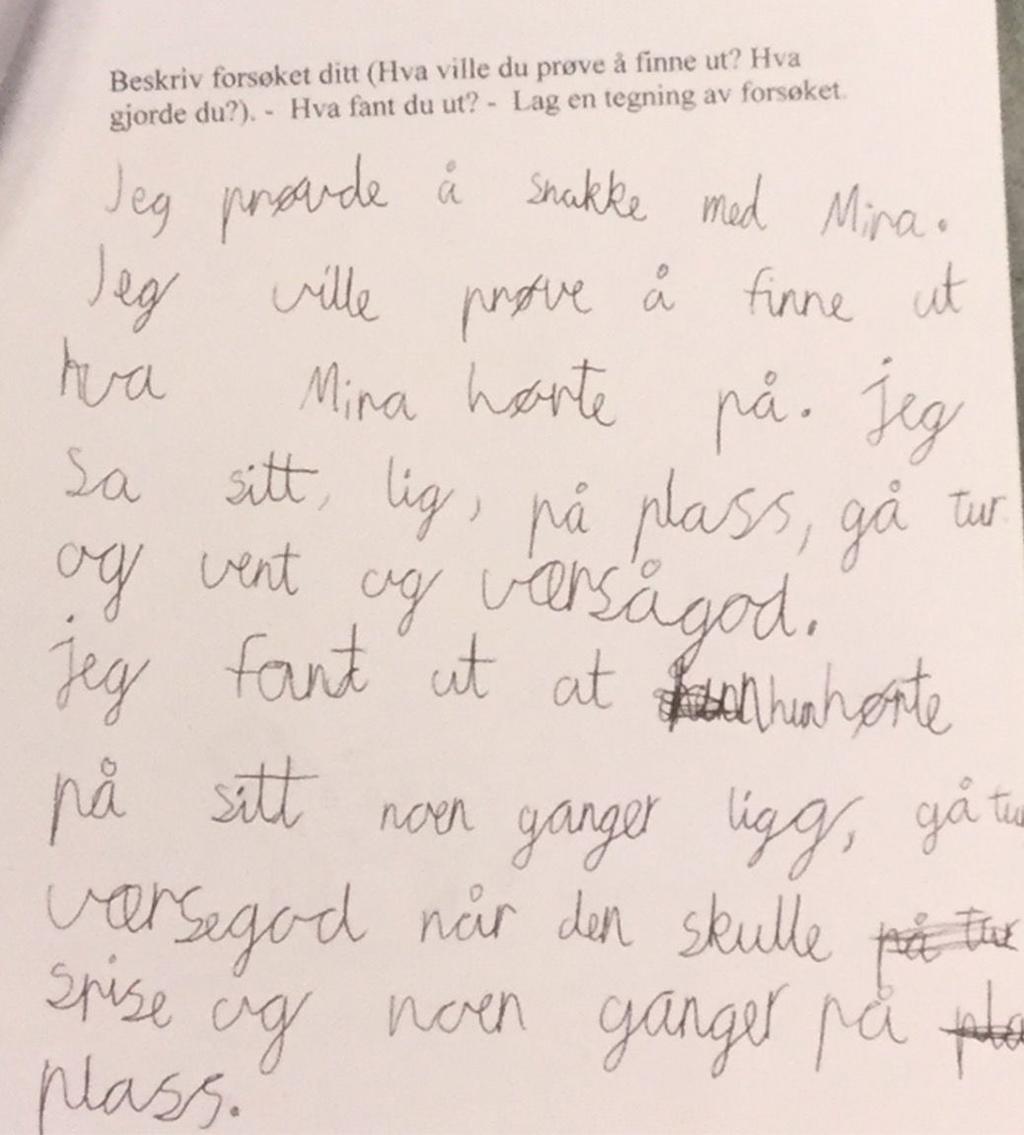 Beskriv forsøket ditt (Hva ville du prøve å finne ut? Hva
gjorde du?). - Hva fant du ut? - Lag en tegning av forsøket.
Jeg prøvde å snakke med Mina.
Jeg ville prøve å finne ut
hva Mina hørte på. jeg
Sa sitt, lig, på plass, gå tur
og vent og værsågod.
jeg fant ut at hun hørte
på sitt noen ganger ligg, gå tu
værsegod når den skulle på tur
spise og noen ganger på pla
plass.